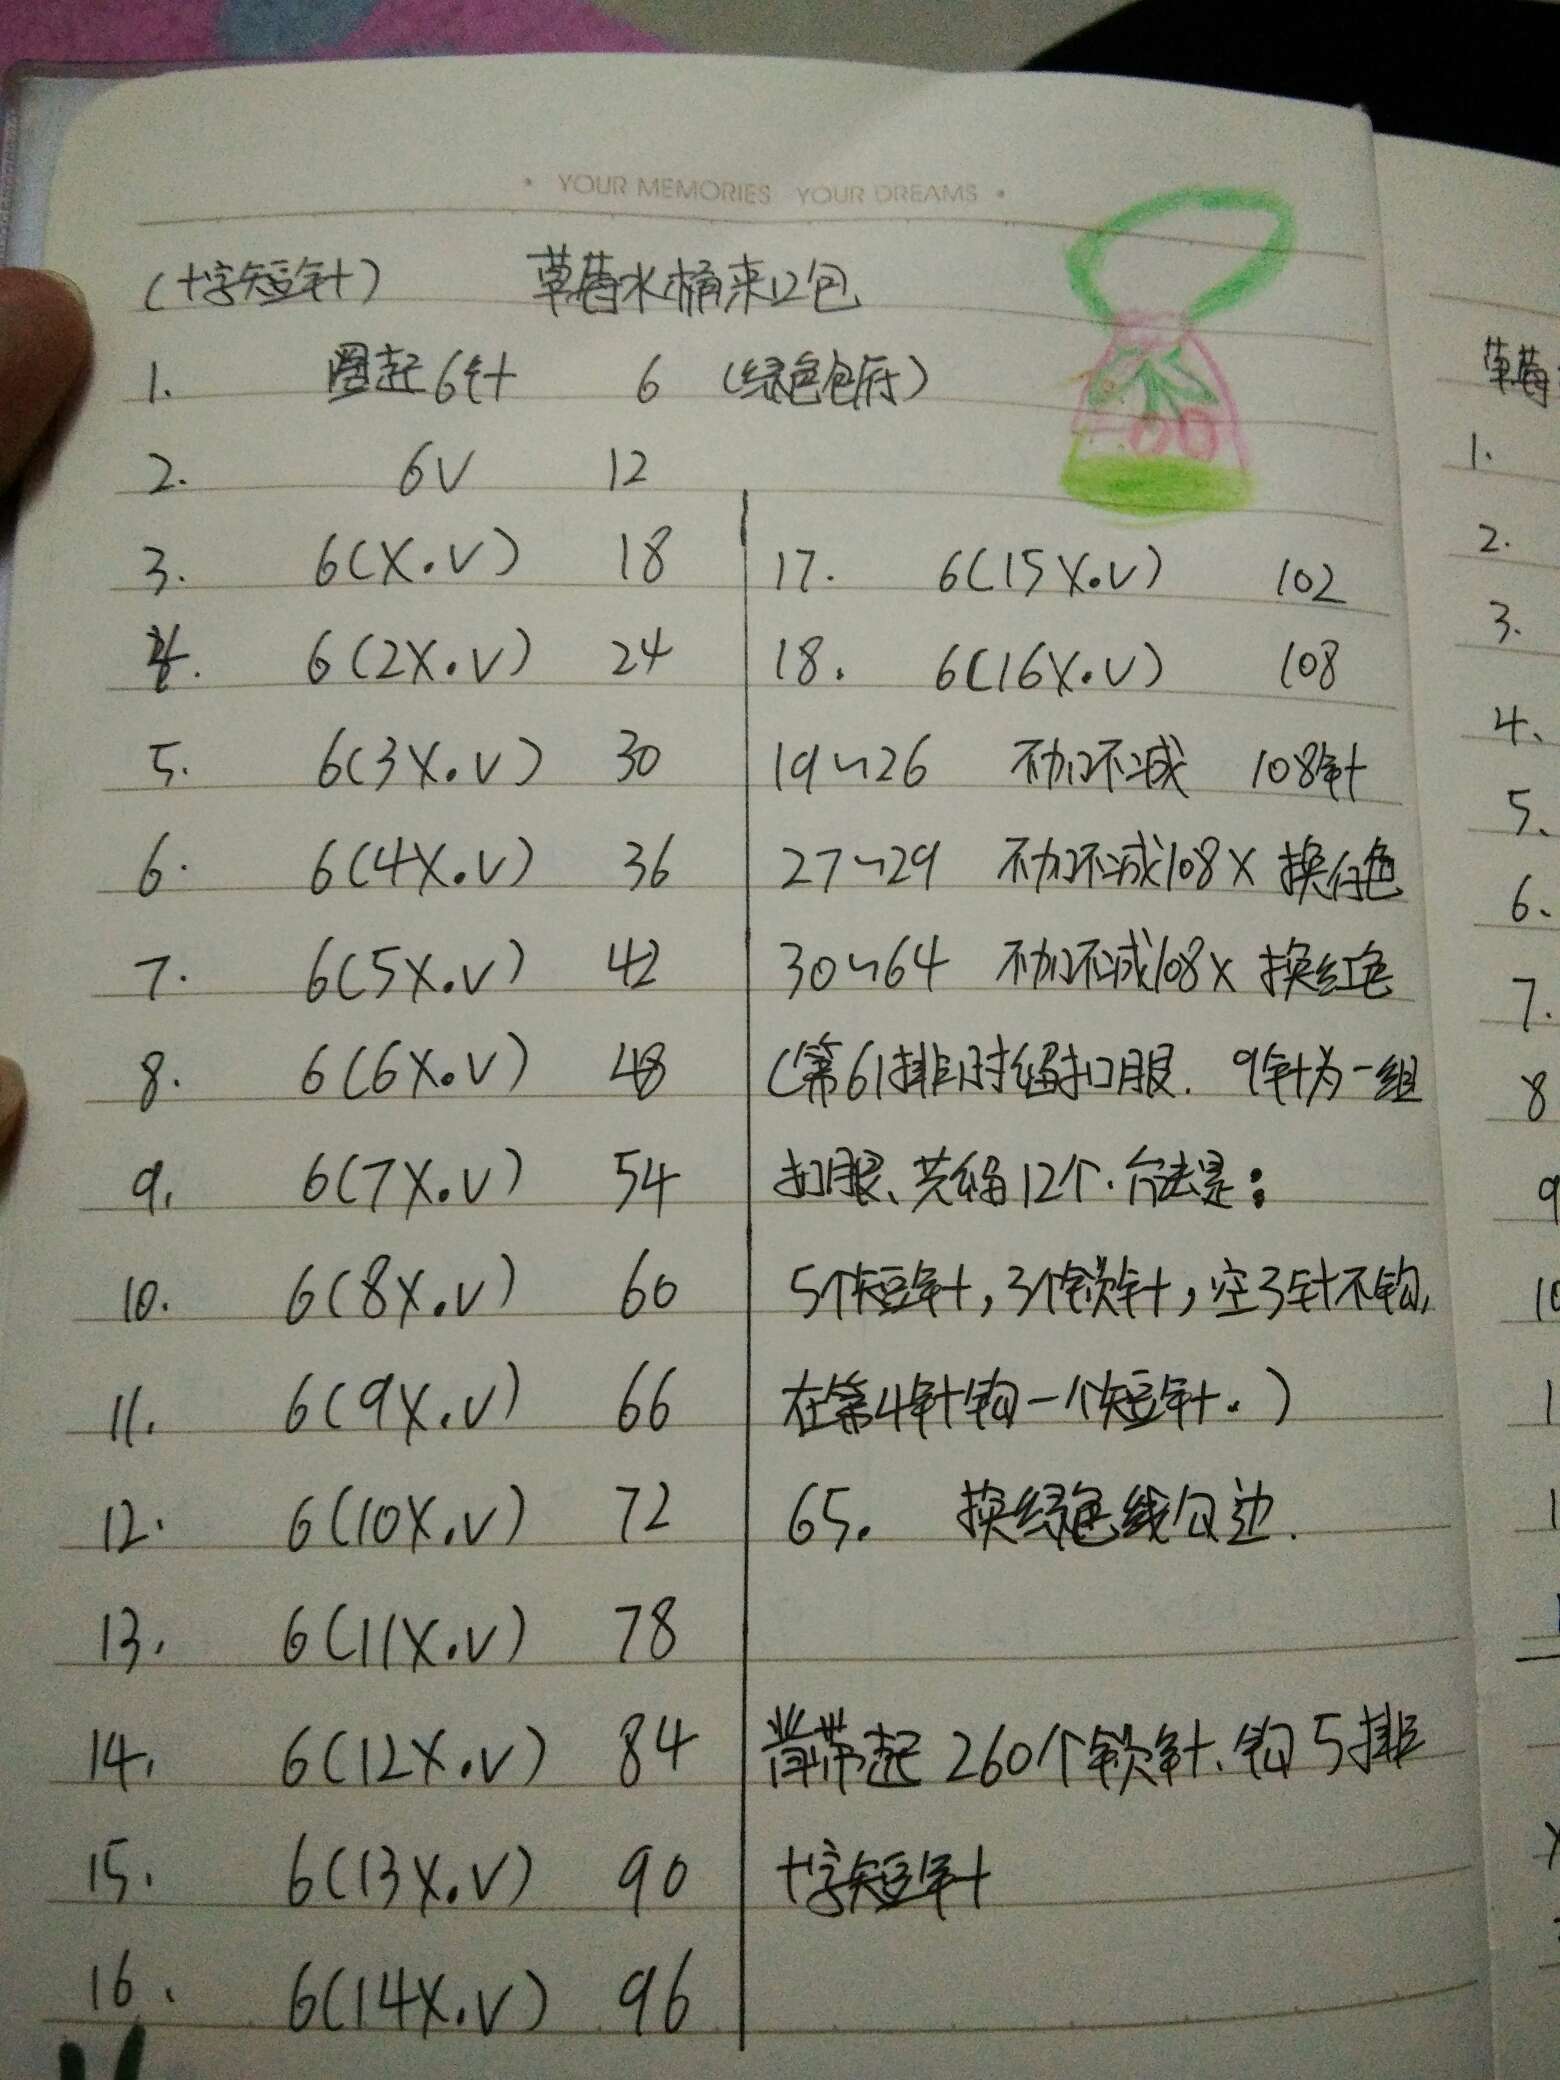 • YOUR MEMORIES YOUR DREAMS •
(十字短针) 草莓水桶束口包
1. 圈起6针 6 (绿色包底)
2. 6V 12
3. 6(X.V) 18
4. 6(2X.V) 24
5. 6(3X.V) 30
6. 6(4X.V) 36
7. 6(5X.V) 42
8. 6(6X.V) 48
9. 6(7X.V) 54
10. 6(8X.V) 60
11. 6(9X.V) 66
12. 6(10X.V) 72
13. 6(11X.V) 78
14. 6(12X.V) 84
15. 6(13X.V) 90
16. 6(14X.V) 96
17. 6(15X.V) 102
18. 6(16X.V) 108
19~26 不加不减 108针
27~29 不加不减108X 换白色
30~64 不加不减108X 换红色
(第61排时留扣眼. 9针为一组
扣眼、共留12个.方法是:
5个短针,3个锁针,空3针不钩,
在第4针钩一个短针.)
65. 换绿色线勾边.
背带起260个锁针、钩5排
十字短针
草莓
1.
2.
3.
4.
5.
6.
7.
8
9
10